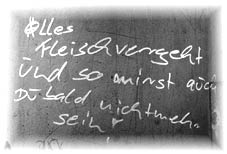 Alles
Fleisch vergeht
Und so wirst auch
Du bald nicht mehr
sein